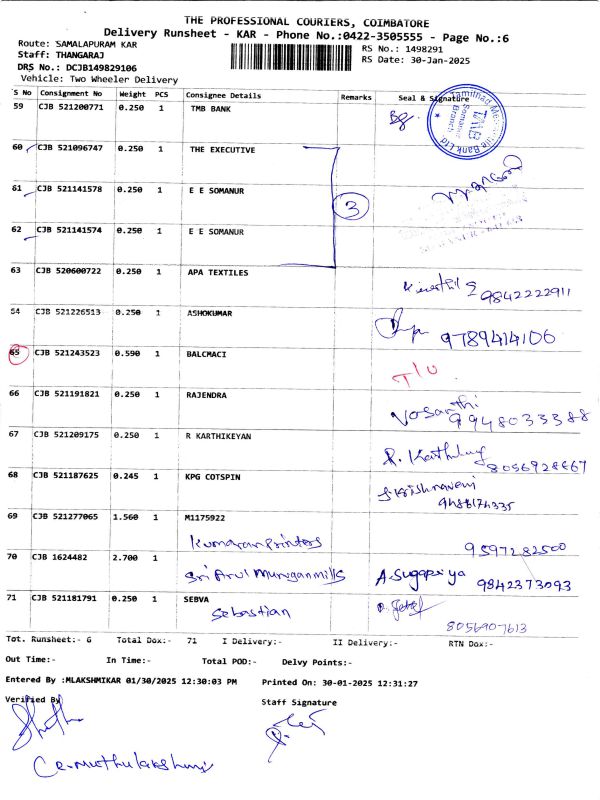 THE PROFESSIONAL COURIERS, COIMBATORE
Delivery Runsheet - KAR - Phone No.:0422-3505555 - Page No.:6
Route: SAMALAPURAM KAR
Staff: THANGARAJ
DRS No.: DCJB149829106
Vehicle: Two Wheeler Delivery
RS No.: 1498291
RS Date: 30-Jan-2025
S No Consignment No Weight PCS Consignee Details Remarks Seal & Signature
59 CJB 521200771 0.250 1 TMB BANK
60 CJB 521096747 0.250 1 THE EXECUTIVE
61 CJB 521141578 0.250 1 E E SOMANUR
3
62 CJB 521141574 0.250 1 E E SOMANUR
63 CJB 520600722 0.250 1 APA TEXTILES
9842222911
64 CJB 521226513 0.250 1 ASHOKUMAR
9789414106
65 CJB 521243523 0.590 1 BALCMACI
66 CJB 521191821 0.250 1 RAJENDRA
9948033388
67 CJB 521209175 0.250 1 R KARTHIKEYAN
68 CJB 521187625 0.245 1 KPG COTSPIN
S. Krishnaveni
69 CJB 521277065 1.560 1 M1175922
Kumaran Printers 9597282500
70 CJB 1624482 2.700 1
Sri Arul Murugan mills A. Sugapriya 9842373093
71 CJB 521181791 0.250 1 SEBVA
Sebastian
8056907613
Tot. Runsheet:- 6 Total Dox:- 71 I Delivery:- II Delivery:- RTN Dox:-
Out Time:- In Time:- Total POD:- Delvy Points:-
Entered By :MLAKSHMIKAR 01/30/2025 12:30:03 PM Printed On: 30-01-2025 12:31:27
Verified By Staff Signature